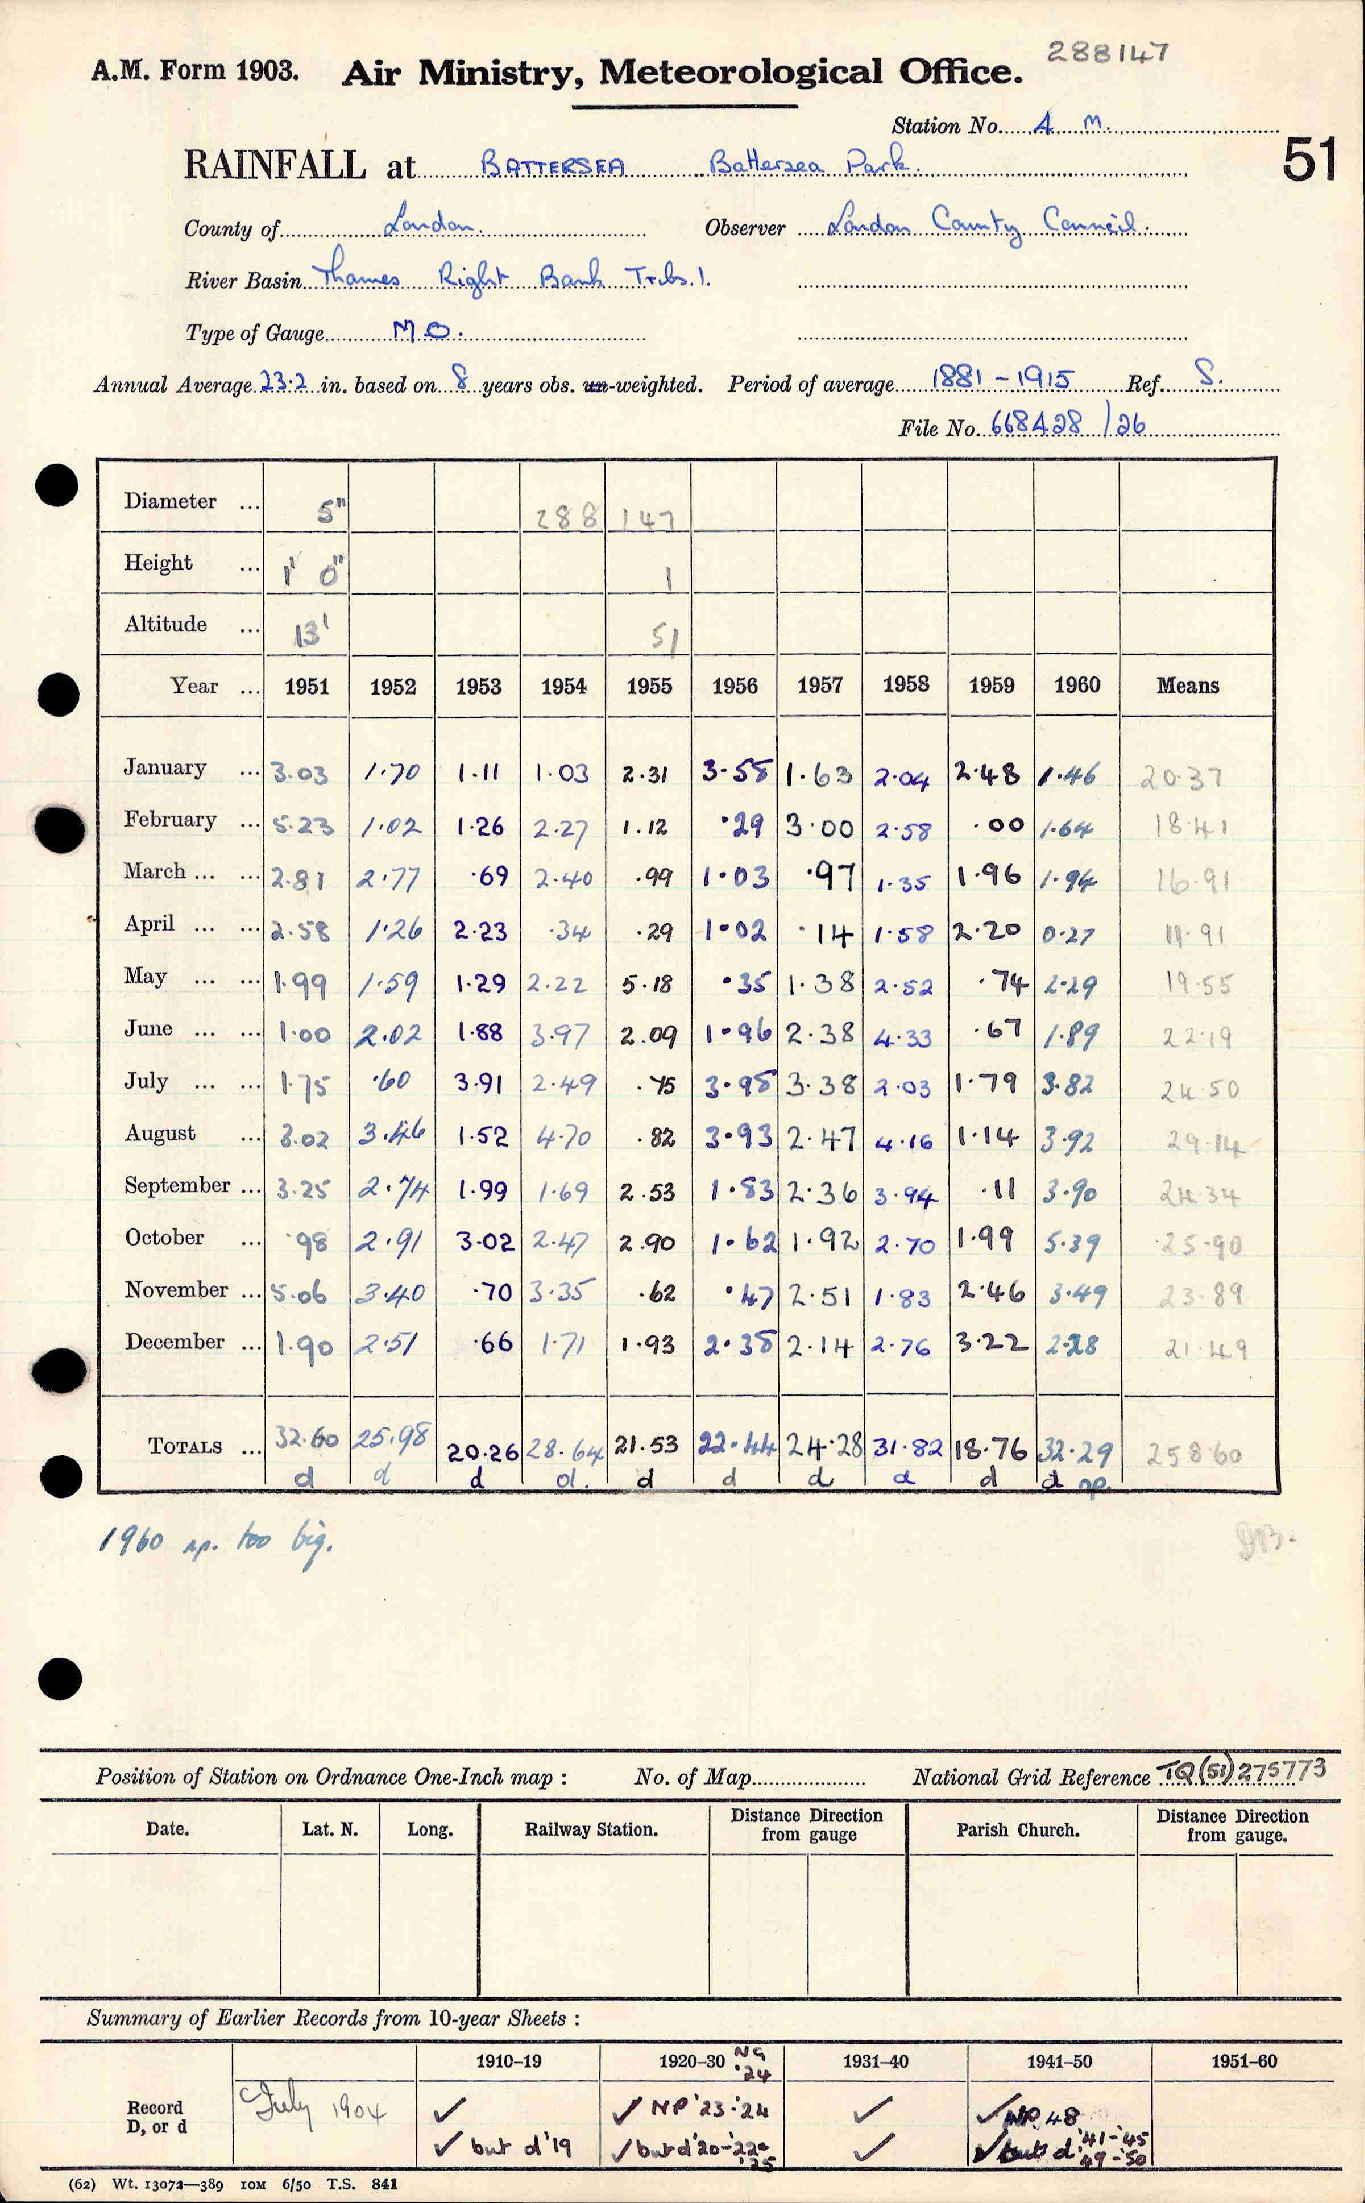 288147
A.M. Form 1903. Air Ministry, Meteorological Office.
Station No. A M.
51
RAINFALL at BATTERSEA Battersea Park.
County of London. Observer London County Council.
River Basin Thames Right Bank Tribs. 1.
Type of Gauge M O.
Annual Average 23.2 in. based on 8 years obs. un-weighted. Period of average 1881-1915 Ref. S.
File No. 668428/26
Diameter ... 5" 288 147
Height ... 1' 0" 1
Altitude ... 13' 51
Year ... 1951 1952 1953 1954 1955 1956 1957 1958 1959 1960 Means
January ... 3.03 1.70 1.11 1.03 2.31 3.58 1.63 2.04 2.48 1.46 20.37
February ... 5.23 1.02 1.26 2.27 1.12 .29 3.00 2.58 .00 1.64 18.41
March ... ... 2.81 2.77 .69 2.40 .99 1.03 .97 1.35 1.96 1.94 16.91
April ... ... 2.58 1.26 2.23 .34 .29 1.02 .14 1.58 2.20 0.27 11.91
May ... ... 1.99 1.59 1.29 2.22 5.18 .35 1.38 2.52 .74 2.29 19.55
June ... ... 1.00 2.02 1.88 3.97 2.09 1.96 2.38 4.33 .67 1.89 22.19
July ... ... 1.75 .60 3.91 2.49 .75 3.98 3.38 2.03 1.79 3.82 24.50
August ... 3.02 3.46 1.52 4.70 .82 3.93 2.47 4.16 1.14 3.92 29.14
September ... 3.25 2.74 1.99 1.69 2.53 1.83 2.36 3.94 .11 3.90 24.34
October ... .98 2.91 3.02 2.47 2.90 1.62 1.92 2.70 1.99 5.39 25.90
November ... 5.06 3.40 .70 3.35 .62 .47 2.51 1.83 2.46 3.49 23.89
December ... 1.90 2.51 .66 1.71 1.93 2.38 2.14 2.76 3.22 2.28 21.49
TOTALS ... 32.60 25.98 20.26 28.64 21.53 22.44 24.28 31.82 18.76 32.29 258.60
d d d d. d d d d d d np.
1960 np. too big.
Position of Station on Ordnance One-Inch map : No. of Map National Grid Reference TQ(51)275773
Date. Lat. N. Long. Railway Station. Distance Direction from gauge Parish Church. Distance Direction from gauge.
Summary of Earlier Records from 10-year Sheets :
1910–19 1920–30 NG '24 1931–40 1941–50 1951–60
Record D, or d July 1904 ✓ ✓ NP '23-'24 ✓ ✓ NP. 48
✓ but d '19 ✓ but d '20-'22 '25 ✓ ✓ but d '41-'45 '49-'50
(62) Wt. 13072—389 10M 6/50 T.S. 841